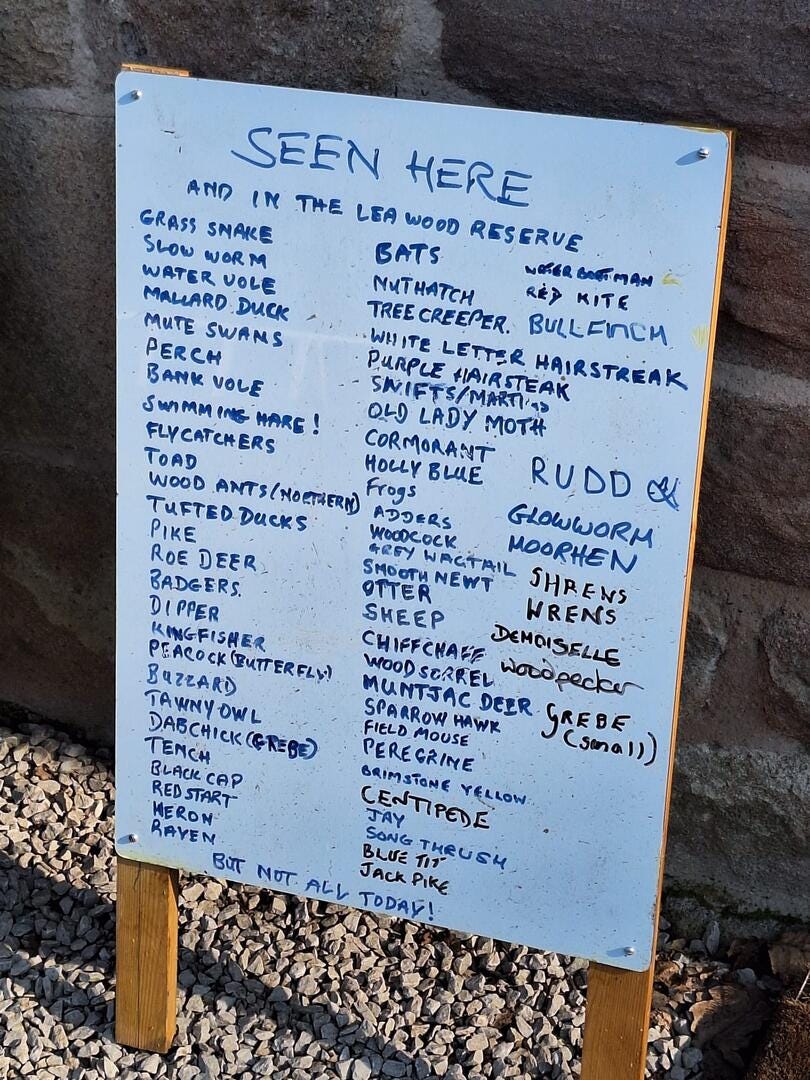 SEEN HERE
AND IN THE LEA WOOD RESERVE
GRASS SNAKE
SLOW WORM
WATER VOLE
MALLARD DUCK
MUTE SWANS
PERCH
BANK VOLE
SWIMMING HARE!
FLYCATCHERS
TOAD
WOOD ANTS (NORTHERN)
TUFTED DUCKS
PIKE
ROE DEER
BADGERS.
DIPPER
KINGFISHER
PEACOCK (BUTTERFLY)
BUZZARD
TAWNY OWL
DABCHICK (GREBE)
TENCH
BLACK CAP
REDSTART
HERON
RAVEN
BATS
NUTHATCH
TREECREEPER.
WHITE LETTER HAIRSTREAK
PURPLE HAIRSTEAK
SWIFTS/MARTINS
OLD LADY MOTH
CORMORANT
HOLLY BLUE
Frogs
ADDERS
WOODCOCK
GREY WAGTAIL
SMOOTH NEWT
OTTER
SHEEP
CHIFFCHAFF
WOODSORREL
MUNTJAC DEER
SPARROW HAWK
FIELD MOUSE
PEREGRINE
BRIMSTONE YELLOW
CENTIPEDE
JAY
SONG THRUSH
BLUE TIT
JACK PIKE
WATER BOATMAN
RED KITE
BULLFINCH
RUDD
GLOWWORM
MOORHEN
SHRENS
WRENS
DEMOISELLE
woodpecker
GREBE
(small)
BUT NOT ALL TODAY!